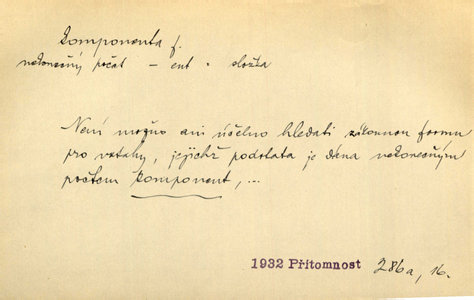 Komponenta f.
nekonečný počet – ent . složka
Není možno ani účelno hledati zákonnou formu
pro vztahy, jejichž podstata je dána nekonečným
počtem komponent, ...
1932 Přítomnost 286a, 16.